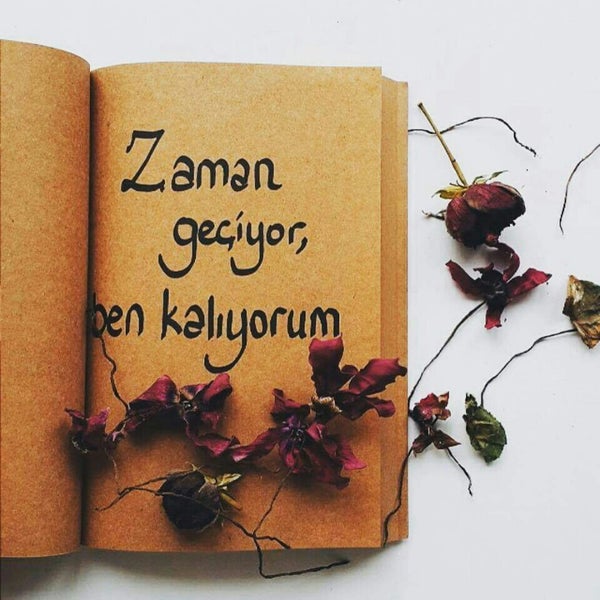 Zaman
geçiyor,
ben kalıyorum